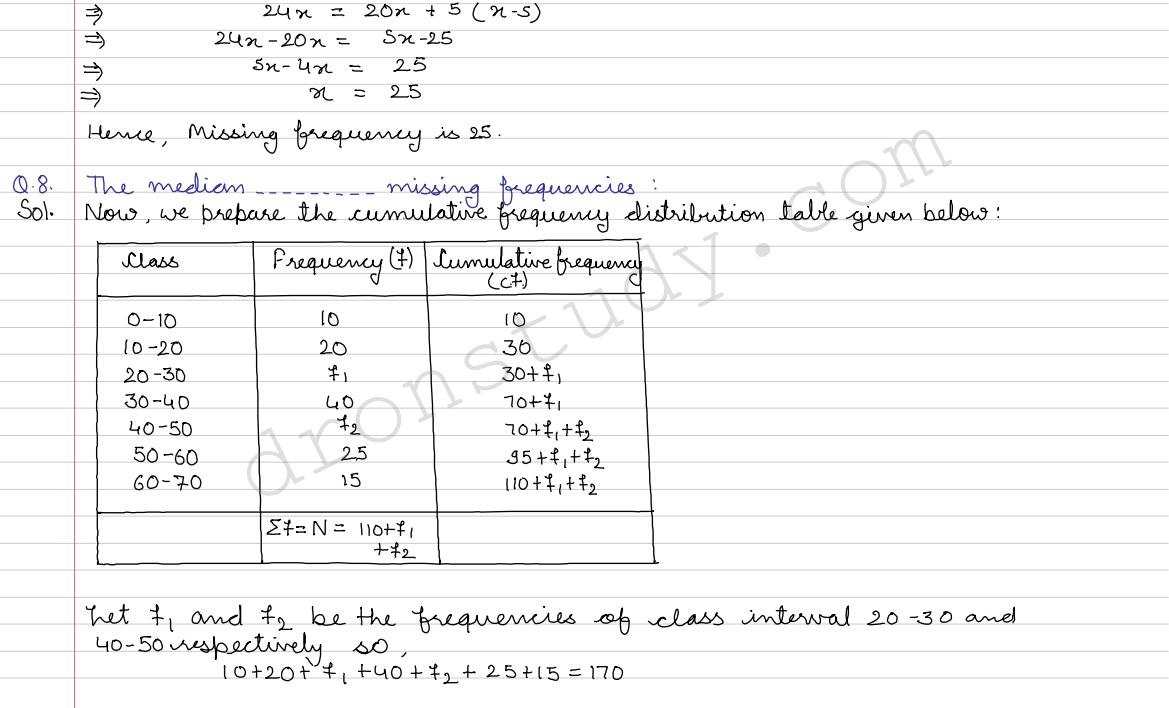 ⇒ 24x = 20x + 5 (x-5)
⇒ 24x-20x = 5x-25
⇒ 5x-4x = 25
⇒ x = 25
Hence, Missing frequency is 25.
Q.8. The median --------- missing frequencies :
Sol. Now, we prepare the cumulative frequency distribution table given below:
Class Frequency (f) Cumulative frequency
(cf)
0-10 10 10
10-20 20 30
20-30 f₁ 30+f₁
30-40 40 70+f₁
40-50 f₂ 70+f₁+f₂
50-60 25 95+f₁+f₂
60-70 15 110+f₁+f₂
Σf=N= 110+f₁
+f₂
Let f₁ and f₂ be the frequencies of class interval 20-30 and
40-50 respectively so,
10+20+f₁+40+f₂+25+15=170
dronstudy.com